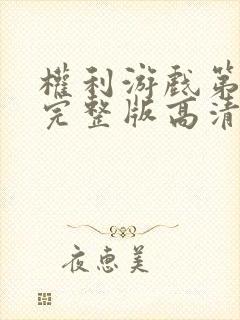 權利游戲第
完整版高清
夜惠美